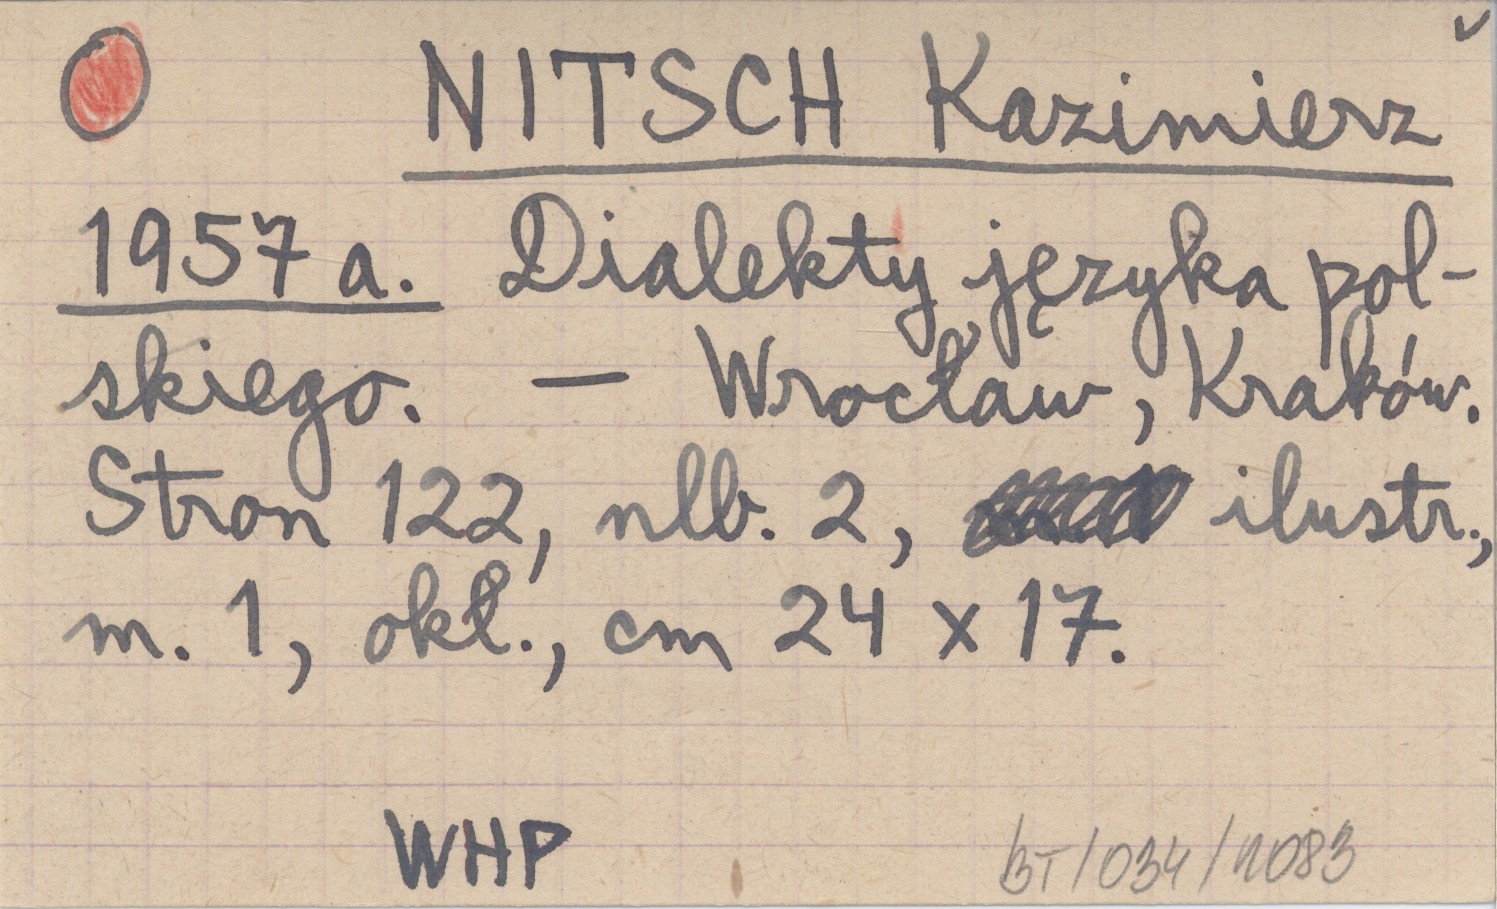 NITSCH Kazimierz
1957 a. Dialekty języka pol-
skiego. — Wrocław, Kraków.
Stron 122, nlb. 2, ilustr.,
m. 1, okł., cm 24 x 17.
WHP
BT/034/